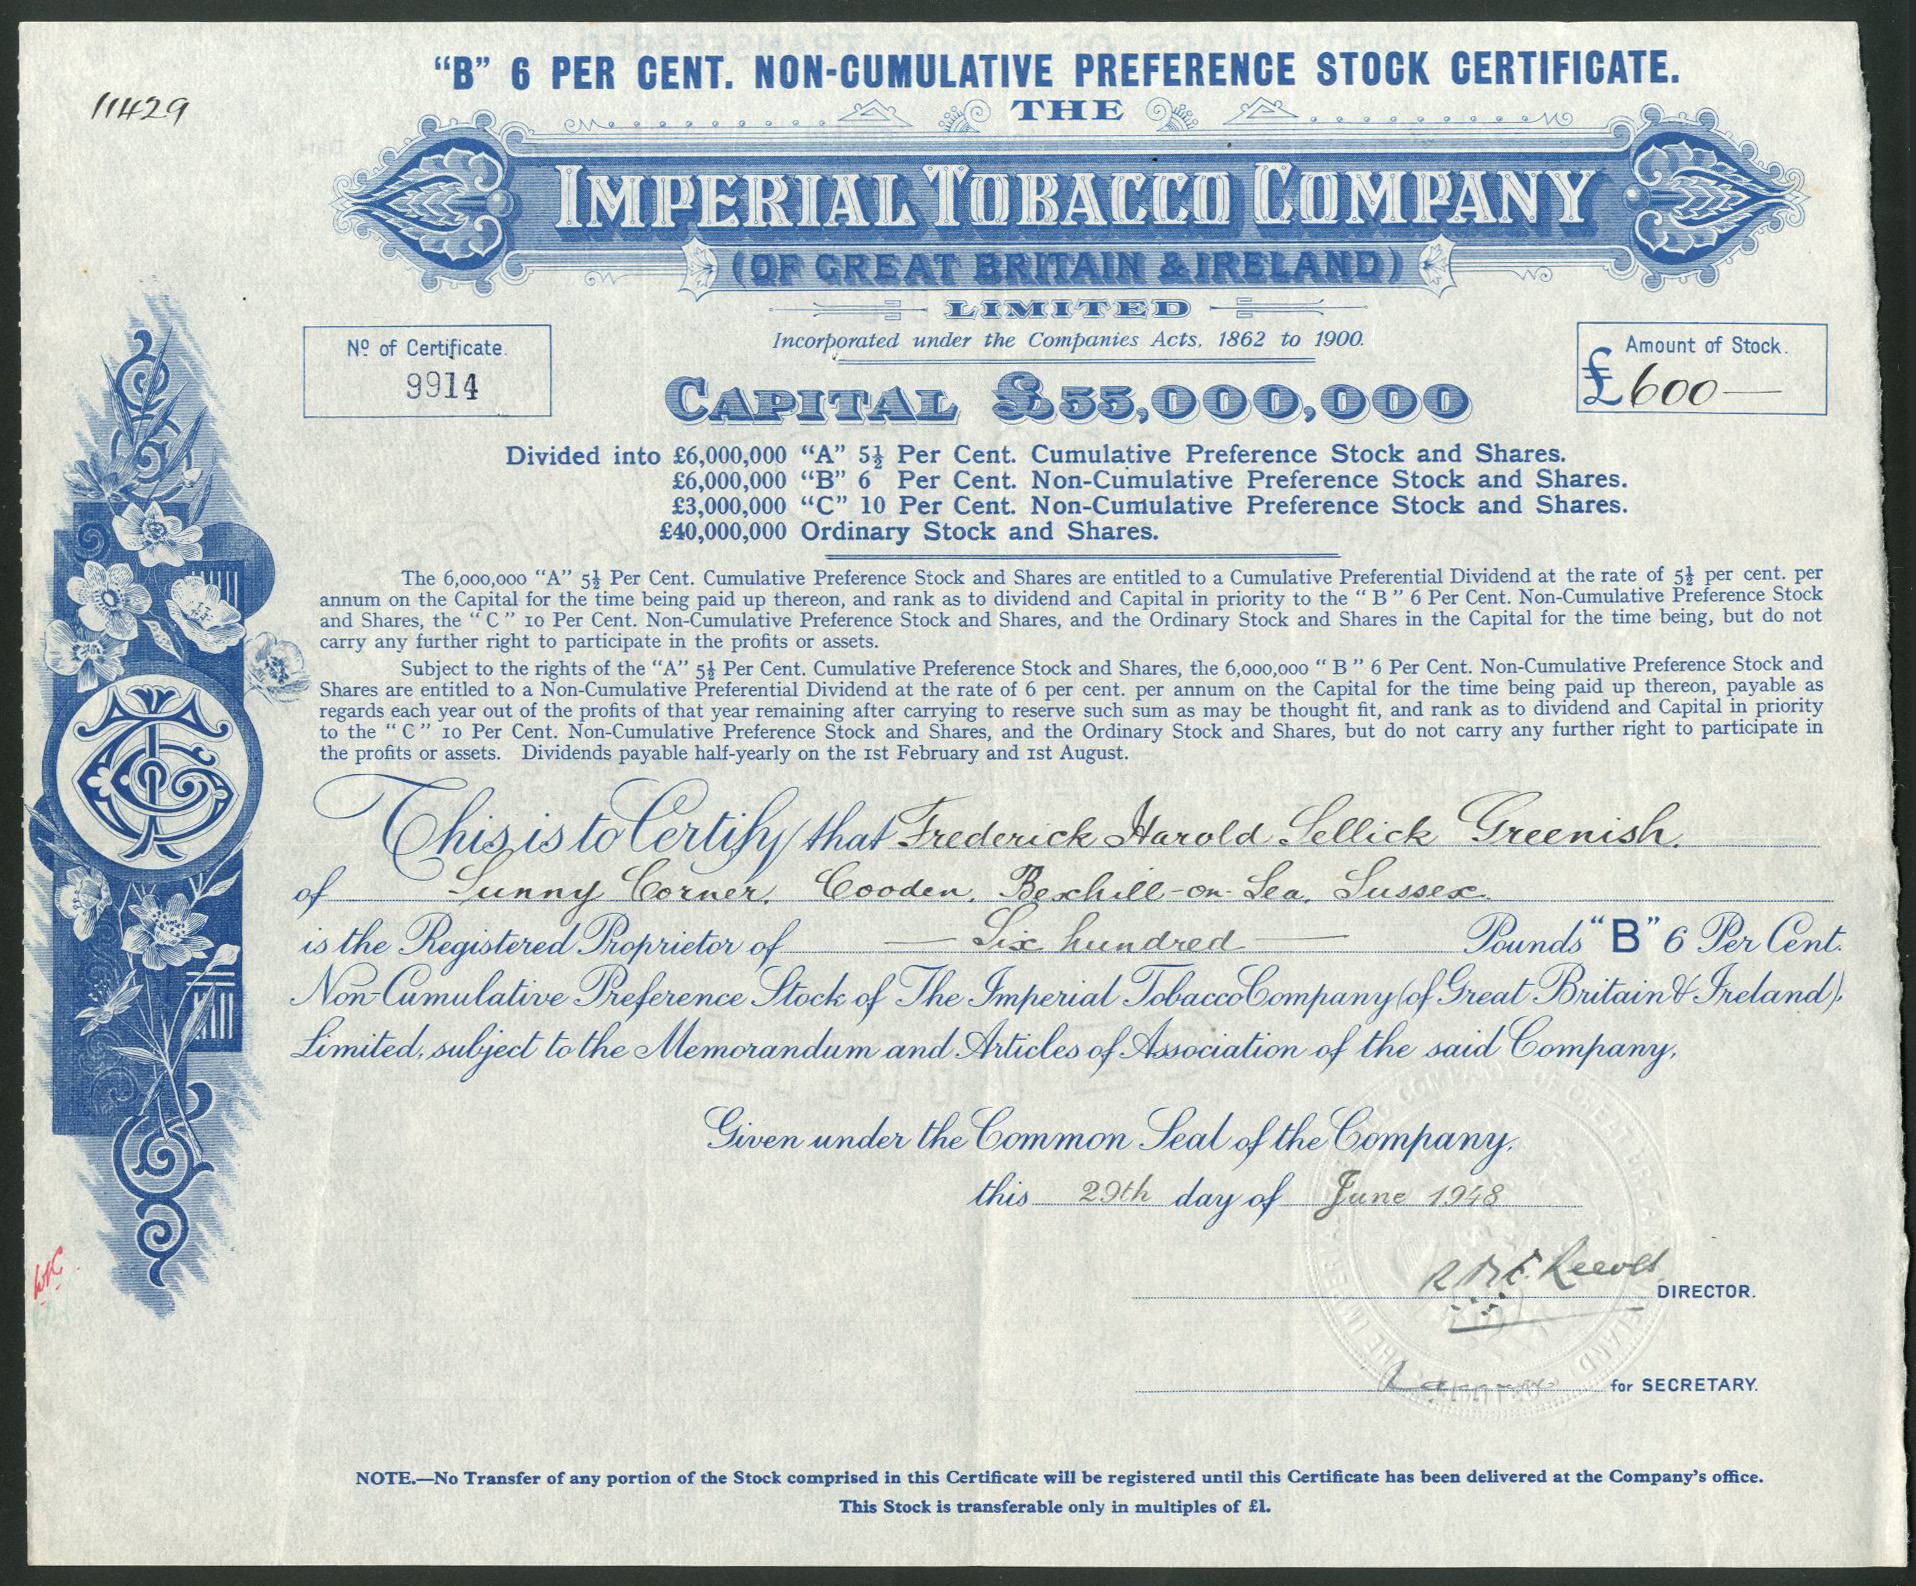 "B" 6 PER CENT. NON-CUMULATIVE PREFERENCE STOCK CERTIFICATE.
11429
THE
IMPERIAL TOBACCO COMPANY
(OF GREAT BRITAIN & IRELAND)
LIMITED
Incorporated under the Companies Acts, 1862 to 1900.
No of Certificate.
9914
Amount of Stock.
£600—
CAPITAL £55,000,000
Divided into £6,000,000 "A" 5½ Per Cent. Cumulative Preference Stock and Shares.
£6,000,000 "B" 6 Per Cent. Non-Cumulative Preference Stock and Shares.
£3,000,000 "C" 10 Per Cent. Non-Cumulative Preference Stock and Shares.
£40,000,000 Ordinary Stock and Shares.
The 6,000,000 "A" 5½ Per Cent. Cumulative Preference Stock and Shares are entitled to a Cumulative Preferential Dividend at the rate of 5½ per cent. per
annum on the Capital for the time being paid up thereon, and rank as to dividend and Capital in priority to the "B" 6 Per Cent. Non-Cumulative Preference Stock
and Shares, the "C" 10 Per Cent. Non-Cumulative Preference Stock and Shares, and the Ordinary Stock and Shares in the Capital for the time being, but do not
carry any further right to participate in the profits or assets.
Subject to the rights of the "A" 5½ Per Cent. Cumulative Preference Stock and Shares, the 6,000,000 "B" 6 Per Cent. Non-Cumulative Preference Stock and
Shares are entitled to a Non-Cumulative Preferential Dividend at the rate of 6 per cent. per annum on the Capital for the time being paid up thereon, payable as
regards each year out of the profits of that year remaining after carrying to reserve such sum as may be thought fit, and rank as to dividend and Capital in priority
to the "C" 10 Per Cent. Non-Cumulative Preference Stock and Shares, and the Ordinary Stock and Shares, but do not carry any further right to participate in
the profits or assets. Dividends payable half-yearly on the 1st February and 1st August.
This is to Certify that Frederick Harold Sellick Greenish.
of Sunny Corner, Cooden, Bexhill-on-Sea, Sussex.
is the Registered Proprietor of — Six hundred — Pounds "B" 6 Per Cent.
Non-Cumulative Preference Stock of The Imperial Tobacco Company (of Great Britain & Ireland),
Limited, subject to the Memorandum and Articles of Association of the said Company.
Given under the Common Seal of the Company,
this 29th day of June 1948
Reeves DIRECTOR.
for SECRETARY.
NOTE.—No Transfer of any portion of the Stock comprised in this Certificate will be registered until this Certificate has been delivered at the Company's office.
This Stock is transferable only in multiples of £1.